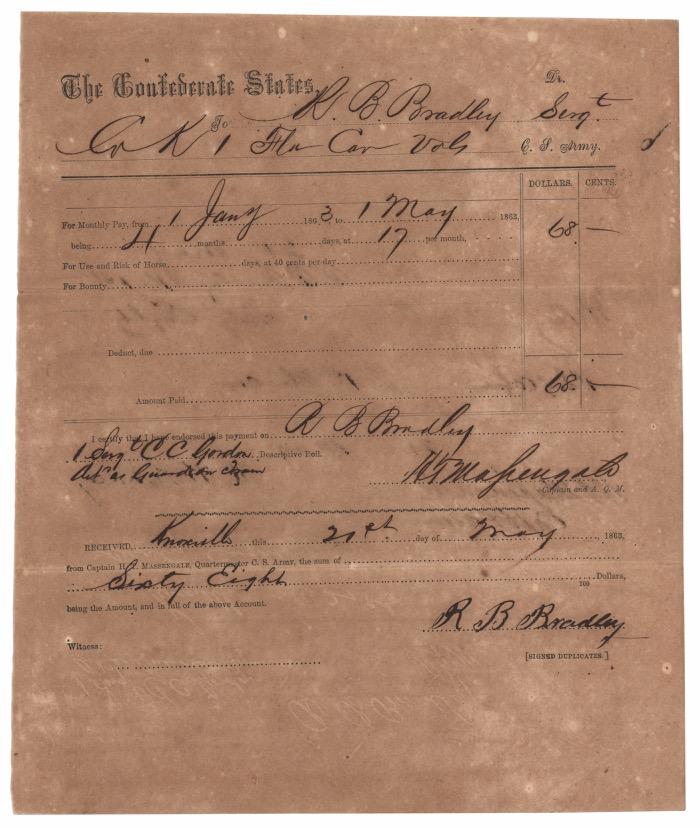 The Confederate States, Dr.
To R. B. Bradley Sergt
Co K 1 Fla Cav Vols C. S. Army.
DOLLARS. CENTS.
For Monthly Pay, from 1 Jany 1863 to 1 May 1863,
being 4 months days, at 17 per month, 68 —
For Use and Risk of Horse days, at 40 cents per day
For Bounty
Deduct, due
Amount Paid 68 —
I certify that I have endorsed this payment on R B Bradley
1 Sergt C C Gordon Descriptive Roll.
Act as Guard
H T Massengale
Captain and A. Q. M.
RECEIVED, Knoxville this 20th day of May, 1863,
from Captain H. T. MASSENGALE, Quartermaster C. S. Army, the sum of
Sixty Eight 100 Dollars,
being the Amount, and in full of the above Account.
R B Bradley
Witness:
[SIGNED DUPLICATES.]